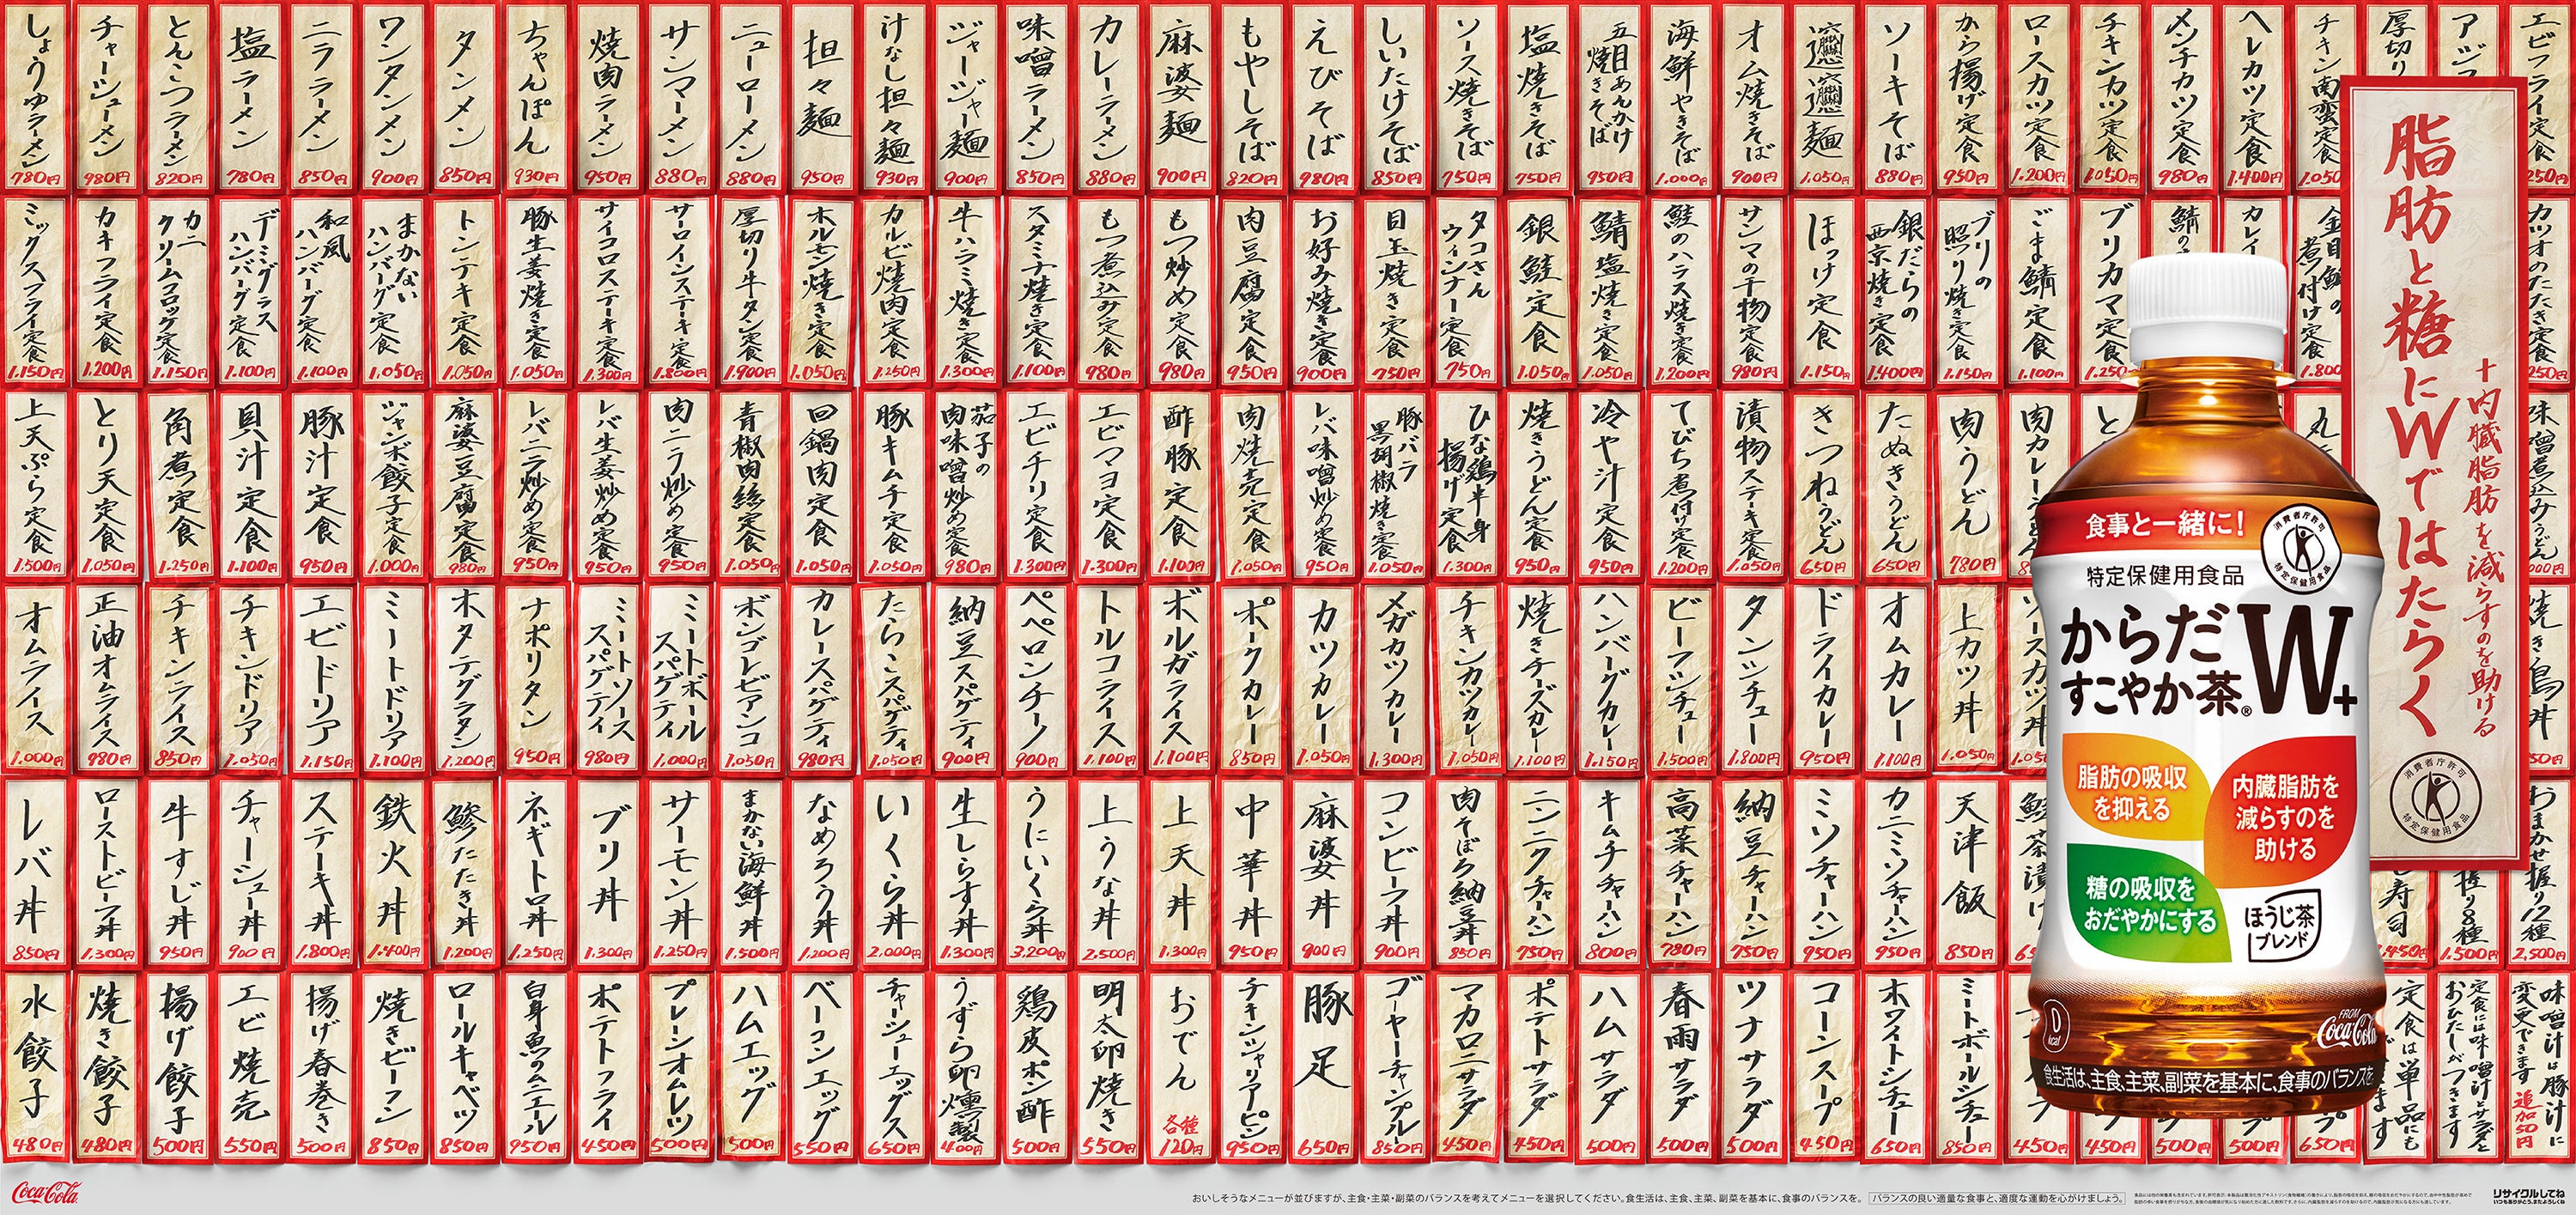 しょうゆラーメン 780円
チャーシューメン 980円
とんこつラーメン 820円
塩ラーメン 780円
ニララーメン 850円
ワンタンメン 900円
タンメン 850円
ちゃんぽん 930円
焼肉ラーメン 950円
サンマーメン 880円
ニューローメン 880円
担々麺 950円
汁なし担々麺 930円
ジャージャー麺 900円
味噌ラーメン 850円
カレーラーメン 880円
麻婆麺 900円
もやしそば 820円
えびそば 980円
しいたけそば 850円
ソース焼きそば 750円
塩焼きそば 750円
五目あんかけ焼きそば 950円
海鮮やきそば 1,000円
オム焼きそば 900円
麺 1,050円
ソーキそば 880円
から揚げ定食 950円
ロースカツ定食 1,200円
チキンカツ定食 1,050円
メンチカツ定食 980円
ヘレカツ定食 1,400円
チキン南蛮定食 1,050
厚切り
アジフ
エビフライ定食 250円
ミックスフライ定食 1,150円
カキフライ定食 1,200円
カニクリームコロッケ定食 1,150円
デミグラスハンバーグ定食 1,100円
和風ハンバーグ定食 1,100円
まかないハンバーグ定食 1,050円
トンテキ定食 1,050円
豚生姜焼き定食 1,050円
サイコロステーキ定食 1,300円
サーロインステーキ定食 1,800円
厚切り牛タン定食 1,900円
ホルモン焼き定食 1,050円
カルビ焼肉定食 1,250円
牛ハラミ焼き定食 1,300円
スタミナ焼き定食 1,100円
もつ煮込み定食 980円
もつ炒め定食 980円
肉豆腐定食 950円
お好み焼き定食 900円
目玉焼き定食 750円
タコさんウィンナー定食 750円
銀鮭定食 1,050円
鯖塩焼き定食 1,050円
鮭のハラス焼き定食 1,200円
サンマの干物定食 980円
ほっけ定食 1,150円
銀だらの西京焼き定食 1,400円
ブリの照り焼き定食 1,150円
ごま鯖定食 1,100円
ブリカマ定食 1,250
鯖の
カレイ
金目鯛の煮付け定食 1,800
カツオのたたき定食 250円
上天ぷら定食 1,500円
とり天定食 1,050円
角煮定食 1,250円
貝汁定食 1,100円
豚汁定食 950円
ジャンボ餃子定食 1,000円
麻婆豆腐定食 980円
レバニラ炒め定食 950円
レバ生姜炒め定食 950円
肉ニラ炒め定食 950円
青椒肉絲定食 1,050円
回鍋肉定食 1,050円
豚キムチ定食 1,050円
茄子の肉味噌炒め定食 980円
エビチリ定食 1,300円
エビマヨ定食 1,300円
酢豚定食 1,100円
肉焼売定食 1,050円
レバ味噌炒め定食 950円
豚バラ黒胡椒焼き定食 1,050円
ひな鶏半身揚げ定食 1,300円
焼きうどん定食 950円
冷や汁定食 950円
てびち煮付け定食 1,200円
漬物ステーキ定食 1,050円
きつねうどん 650円
たぬきうどん 650円
肉うどん 780円
肉カレーうどん
と
丸
味噌煮込みうどん 000円
オムライス 1,000円
正油オムライス 980円
チキンライス 850円
チキンドリア 1,050円
エビドリア 1,150円
ミートドリア 1,100円
ホタテグラタン 1,200円
ナポリタン 950円
ミートソーススパゲティ 980円
ミートボールスパゲティ 1,000円
ボンゴレビアンコ 1,050円
カレースパゲティ 980円
たらこスパゲティ 1,050円
納豆スパゲティ 900円
ペペロンチーノ 900円
トルコライス 1,100円
ボルガライス 1,100円
ポークカレー 850円
カツカレー 1,050円
メガカツカレー 1,300円
チキンカツカレー 1,050円
焼きチーズカレー 1,100円
ハンバーグカレー 1,150円
ビーフシチュー 1,500円
タンシチュー 1,800円
ドライカレー 950円
オムカレー 1,100円
上カツ丼 1,050円
ソースカツ丼 1,050
焼き鳥丼 50円
レバ丼 850円
ローストビーフ丼 1,300円
牛すじ丼 950円
チャーシュー丼 900円
ステーキ丼 1,800円
鉄火丼 1,400円
鯵たたき丼 1,200円
ネギトロ丼 1,250円
ブリ丼 1,300円
サーモン丼 1,250円
まかない海鮮丼 1,500円
なめろう丼 1,200円
いくら丼 2,000円
生しらす丼 1,300円
うにいくら丼 3,200円
上うな丼 2,500円
上天丼 1,300円
中華丼 950円
麻婆丼 900円
コンビーフ丼 900円
肉そぼろ納豆丼 850円
ニンニクチャーハン 750円
キムチチャーハン 800円
高菜チャーハン 780円
納豆チャーハン 750円
ミソチャーハン 950円
カニミソチャーハン 950円
天津飯 850円
鮭茶漬け 65
寿司 1,450円
握り8種 1,500円
おまかせ握り12種 2,500円
水餃子 480円
焼き餃子 480円
揚げ餃子 500円
エビ焼売 550円
揚げ春巻き 500円
焼きビーフン 850円
ロールキャベツ 850円
白身魚のムニエル 950円
ポテトフライ 450円
プレーンオムレツ 500円
ハムエッグ 500円
ベーコンエッグ 550円
チャーシューエッグス 650円
うずら卵燻製 400円
鶏皮ポン酢 500円
明太卵焼き 550円
おでん 各種120円
チキンシャリアピン 950円
豚足 650円
ゴーヤーチャンプルー 850円
マカロニサラダ 450円
ポテトサラダ 450円
ハムサラダ 500円
春雨サラダ 500円
ツナサラダ 500円
コーンスープ 450円
ホワイトシチュー 650円
ミートボールシチュー 850円
450円
450円
500円
500円
プ 650円
定食は単品にも
ます
定食には味噌汁とサラダと
おひたしがつきます
味噌汁は豚汁に
変更できます 追加50円
脂肪と糖にWではたらく
+内臓脂肪を減らすのを助ける
消費者庁許可
特定保健用食品
食事と一緒に!
消費者庁許可
特定保健用食品
特定保健用食品
からだ
すこやか茶®W+
脂肪の吸収
を抑える
内臓脂肪を
減らすのを
助ける
糖の吸収を
おだやかにする
ほうじ茶
ブレンド
0
kcal
FROM
Coca-Cola
食生活は、主食、主菜、副菜を基本に、食事のバランスを。
Coca-Cola
おいしそうなメニューが並びますが、主食・主菜・副菜のバランスを考えてメニューを選択してください。食生活は、主食、主菜、副菜を基本に、食事のバランスを。
バランスの良い適量な食事と、適度な運動を心がけましょう。
リサイクルしてね
いつもありがとう、またよろしくね